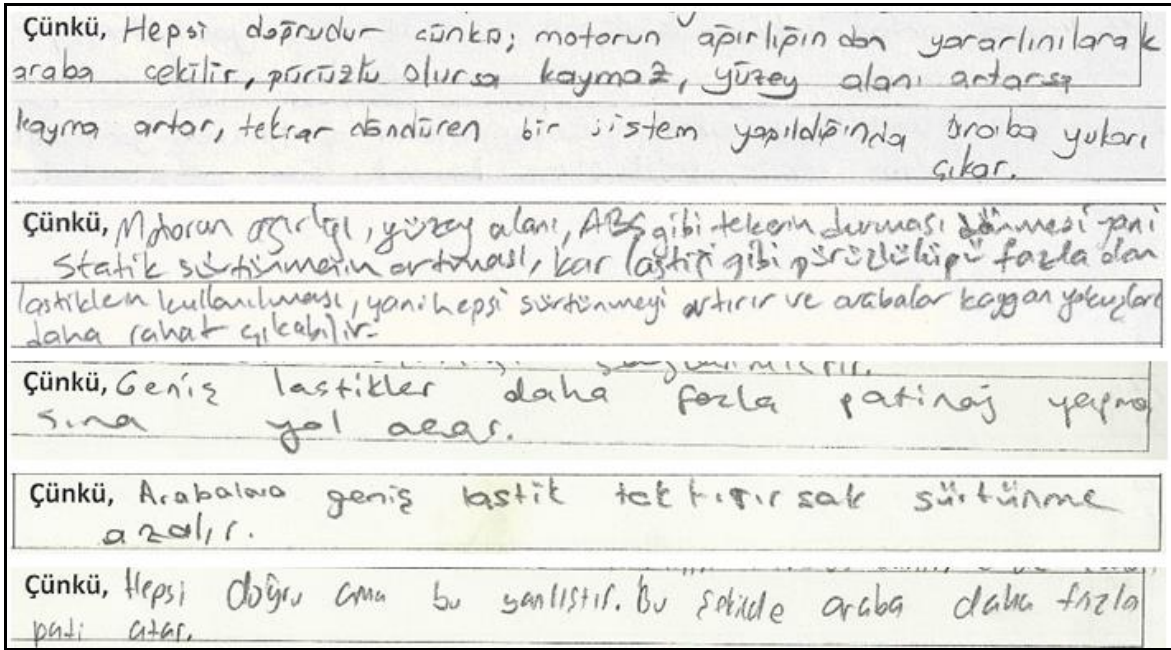 Çünkü, Hepsi doğrudur çünkü; motorun ağırlığından yararlınılarak
araba çekilir, pürüzlü olursa kaymaz, yüzey alanı artarsa
kayma artar, tekrar döndüren bir sistem yapıldığında araba yukarı
çıkar.
Çünkü, Motorun ağırlığı, yüzey alanı, ABS gibi tekerin durması dönmesi yani
statik sürtünmenin artması, kar lastiği gibi pürüzlülüğü fazla olan
lastiklerin kullanılması, yani hepsi sürtünmeyi artırır ve arabalar kaygan yokuşları
daha rahat çıkabilir.
Çünkü, Geniş lastikler daha fazla patinaj yapma
sına yol açar.
Çünkü, Arabalara geniş lastik taktırırsak sürtünme
azalır.
Çünkü, Hepsi doğru ama bu yanlıştır. Bu şekilde araba daha fazla
pati atar.